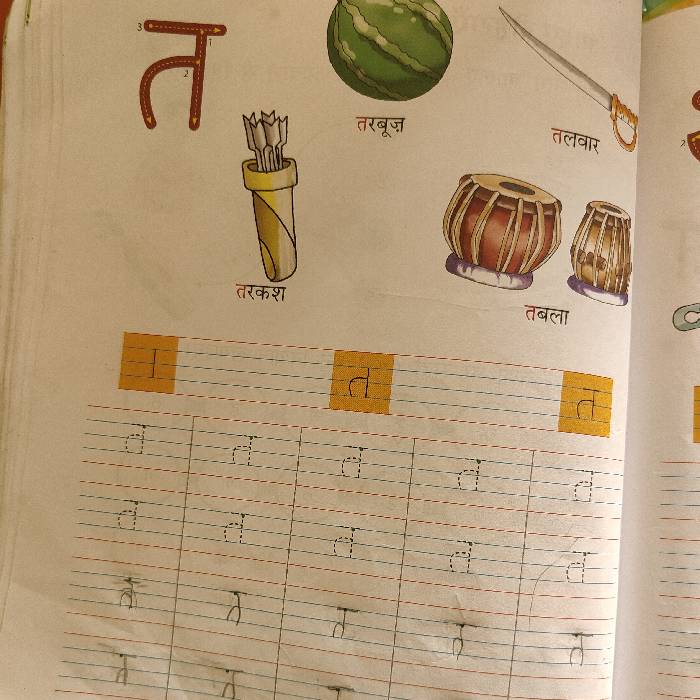 3 त 1 2
तरबूज़
तलवार
तरकश
तबला
। त त
त त त त त
त त त त त
त त त त त
त त त